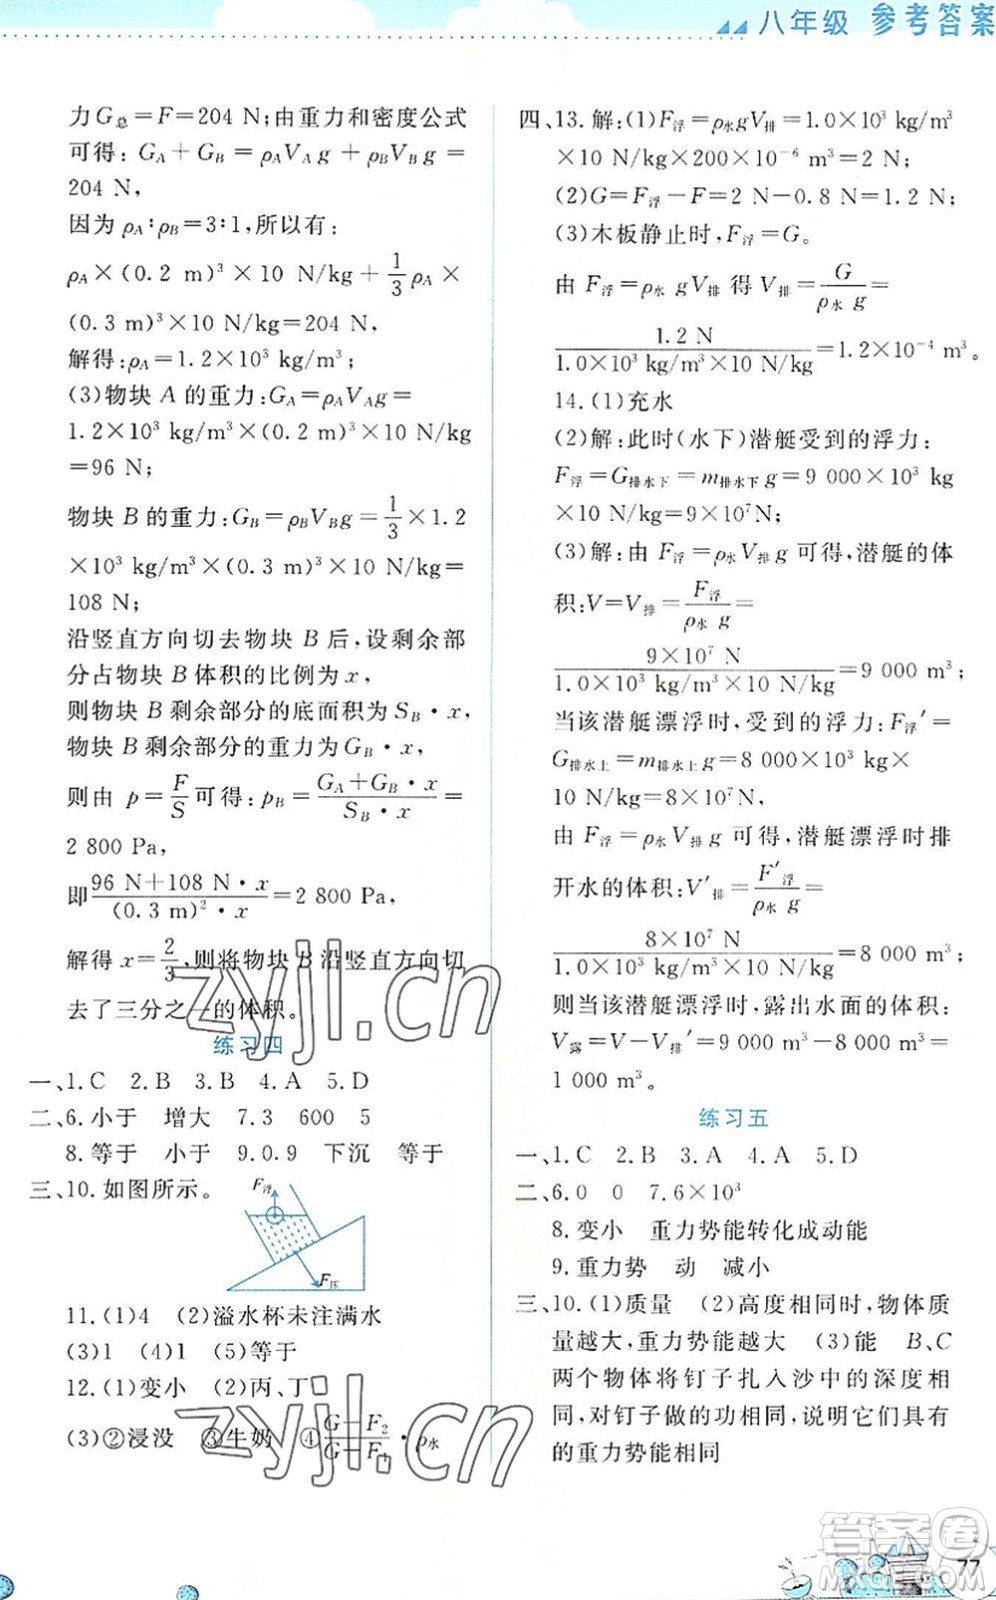 八年级 参考答案
力G总＝F＝204 N；由重力和密度公式
可得：G_A＋G_B＝ρ_AV_A g＋ρ_BV_B g＝
204 N，
因为 ρ_A∶ρ_B＝3∶1，所以有：
ρ_A×(0.2 m)³×10 N/kg＋1/3ρ_A×
(0.3 m)³×10 N/kg＝204 N，
解得：ρ_A＝1.2×10³ kg/m³；
(3)物块 A 的重力：G_A＝ρ_AV_Ag＝
1.2×10³ kg/m³×(0.2 m)³×10 N/kg
＝96 N；
物块 B 的重力：G_B＝ρ_BV_Bg＝1/3×1.2
×10³ kg/m³×(0.3 m)³×10 N/kg＝
108 N；
沿竖直方向切去物块 B 后，设剩余部
分占物块 B 体积的比例为 x，
则物块 B 剩余部分的底面积为 S_B·x，
物块 B 剩余部分的重力为 G_B·x，
则由 p＝F/S 可得：p_B＝(G_A＋G_B·x)/(S_B·x)＝
2 800 Pa，
即(96 N＋108 N·x)/((0.3 m)²·x)＝2 800 Pa，
解得 x＝2/3，则将物块 B 沿竖直方向切
去了三分之一的体积。
练习四
一、1.C 2.B 3.B 4.A 5.D
二、6.小于 增大 7.3 600 5
8.等于 小于 9.0.9 下沉 等于
三、10.如图所示。
F浮
F压
11.(1)4 (2)溢水杯未注满水
(3)1 (4)1 (5)等于
12.(1)变小 (2)丙、丁
(3)②浸没 ③牛奶 ④(G－F₂)/(G－F₁)·ρ水
四、13.解：(1)F浮＝ρ水gV排＝1.0×10³ kg/m³
×10 N/kg×200×10⁻⁶ m³＝2 N；
(2)G＝F浮－F＝2 N－0.8 N＝1.2 N；
(3)木板静止时，F浮＝G。
由 F浮＝ρ水 gV排 得 V排＝G/(ρ水 g)＝
1.2 N/(1.0×10³ kg/m³×10 N/kg)＝1.2×10⁻⁴ m³。
14.(1)充水
(2)解：此时(水下)潜艇受到的浮力：
F浮＝G排水下＝m排水下g＝9 000×10³ kg
×10 N/kg＝9×10⁷N；
(3)解：由 F浮＝ρ水V排 g 可得，潜艇的体
积：V＝V排＝F浮/(ρ水 g)＝
9×10⁷ N/(1.0×10³ kg/m³×10 N/kg)＝9 000 m³；
当该潜艇漂浮时，受到的浮力：F浮′＝
G排水上＝m排水上g＝8 000×10³ kg×
10 N/kg＝8×10⁷N，
由 F浮＝ρ水V排 g 可得，潜艇漂浮时排
开水的体积：V′排＝F′浮/(ρ水 g)＝
8×10⁷ N/(1.0×10³ kg/m³×10 N/kg)＝8 000 m³，
则当该潜艇漂浮时，露出水面的体积：
V露＝V－V排′＝9 000 m³－8 000 m³＝
1 000 m³。
练习五
一、1.C 2.B 3.A 4.A 5.D
二、6.0 0 7.6×10³
8.变小 重力势能转化成动能
9.重力势 动 减小
三、10.(1)质量 (2)高度相同时，物体质
量越大，重力势能越大 (3)能 B、C
两个物体将钉子扎入沙中的深度相
同，对钉子做的功相同，说明它们具有
的重力势能相同
zyjl.cn
zyjl.cn
答案圈
77